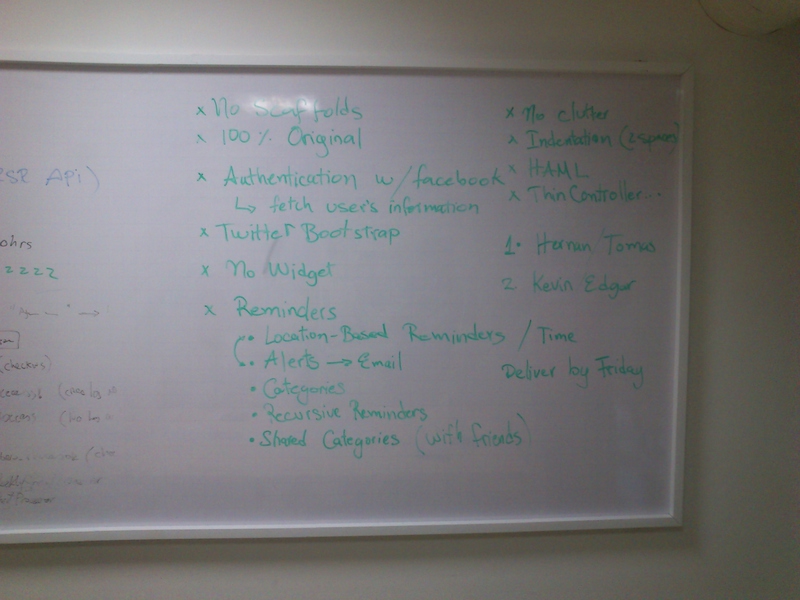 x No Scaffolds
x 100% Original
x Authentication w/facebook
↳ fetch user's information
x Twitter Bootstrap
x No Widget
x Reminders
• Location-Based Reminders / Time
• Alerts → Email
• Categories
• Recursive Reminders
• Shared Categories (with friends)
x No clutter
x Indentation (2 spaces)
x HAML
x Thin Controller...
1. Hernan/Tomas
2. Kevin Edgar
Deliver by Friday
API)
ohrs
2 2 2 2 2
(checkers)